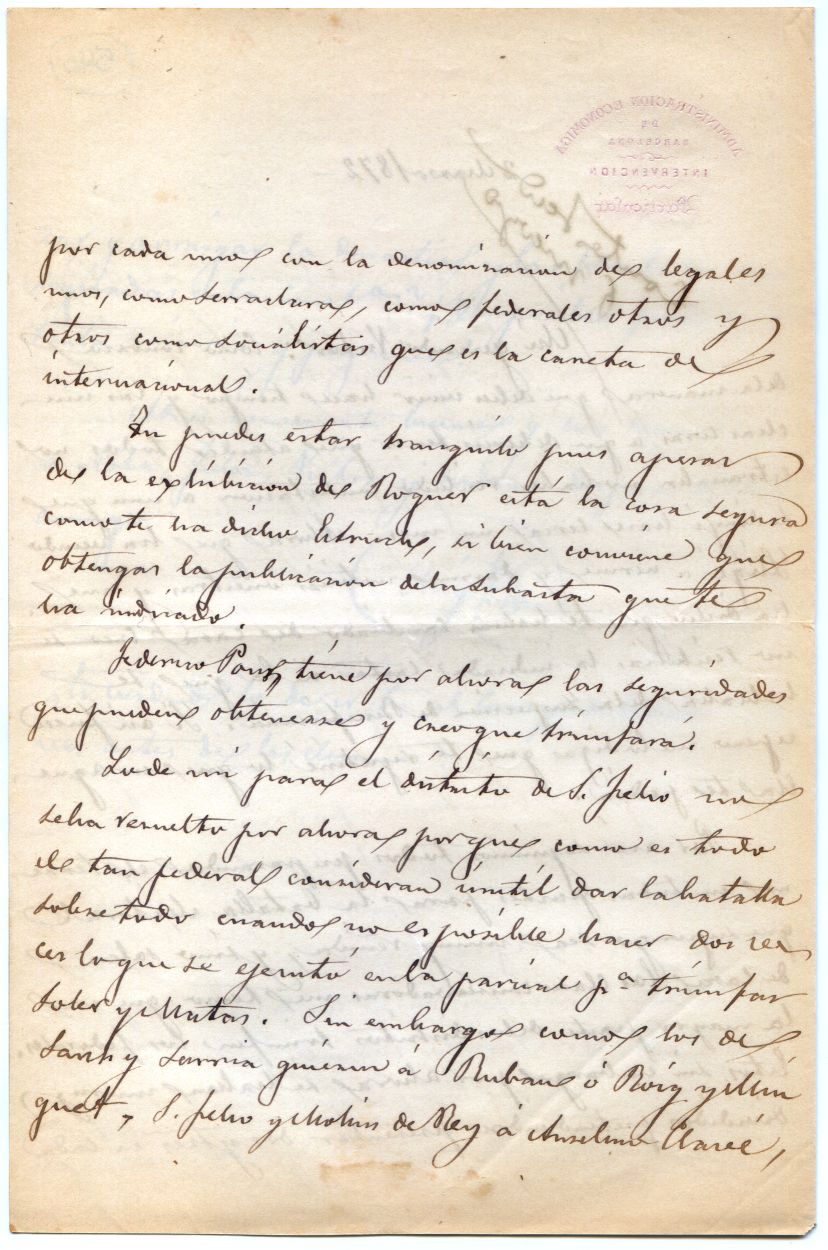 por cada unos con la denominación de legales
unos, como Serraduras, como federales otros y
otros como socialistas que es la careta de
internacional.
Tu puedes estar tranquilo pues apesar
de la exhibición de Roquer está la cosa segura
como te ha dicho Estruch, si bien conviene que
obtengas la publicación de la subasta que te
ha indicado.
Federico Pons, tiene por ahora las seguridades
que pueden obtenerse y creo que triunfará.
Lo de mi para el distrito de S. Feliu no
se ha resuelto por ahora porque como es todo
el tan federal consideran inútil dar la batalla
sobre todo cuando no es posible hacer dos ve
ces lo que se ejecutó en la parcial pª triunfar
Soler y Matas. Sin embargo como los de
Sans y Sarria quieran á Rubau ó Roig y Min
guet, S. Feliu y Molins de Rey á Anselmo Clavé,
ADMINISTRACION ECONOMICA
DE
BARCELONA
INTERVENCION
Particular
1872